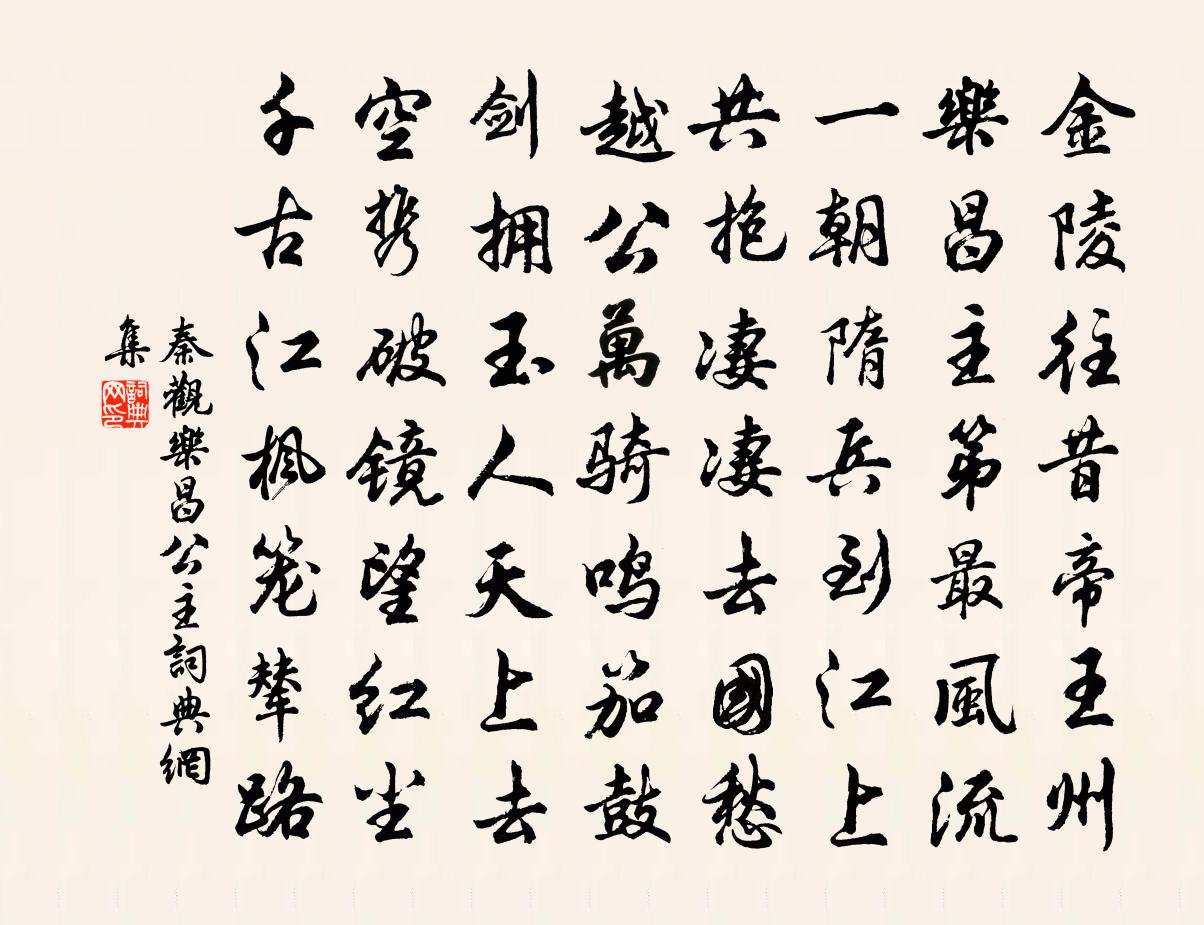 金陵往昔帝王州
樂昌主第最風流
一朝隋兵到江上
共抱凄凄去國愁
越公萬骑鸣笳鼓
剑拥玉人天上去
空携破镜望红尘
千古江枫笼辇路
秦觀樂昌公主詞典網
集
詞典網印